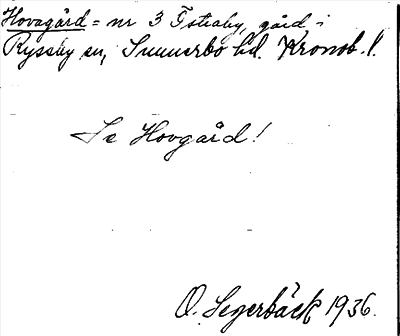 Hovagård = nr 3 Fstraby, gård i
Ryssby sn, Sunnerbo hd. Kronob. l.
Se Hovgård!
O. Segerbäck 1936.